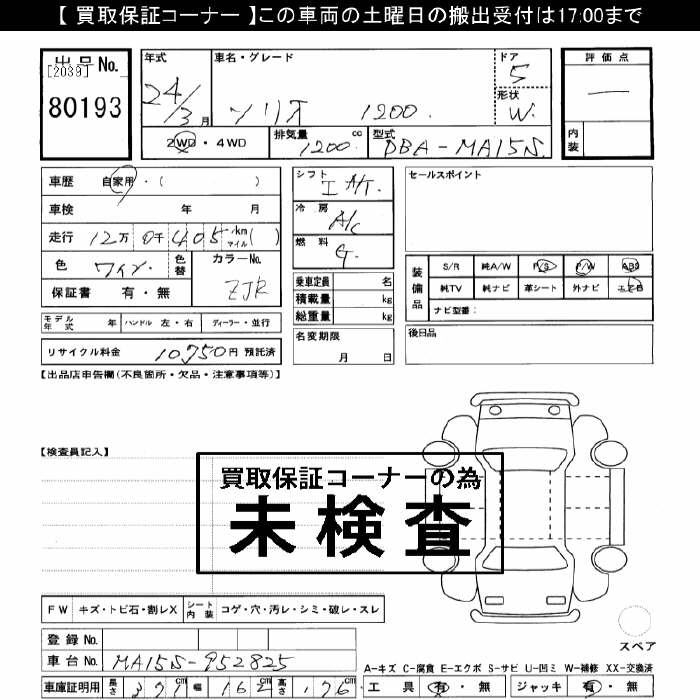 【 買取保証コーナー 】この車両の土曜日の搬出受付は17:00まで
出品No.
[2039]
80193
年式
24/3月
車名・グレード
ソリオ 1200.
ドア
5
形状
W.
評価点
―
内装
2WD・4WD
排気量 1200. cc
型式 DBA-MA15S.
車歴 自家用・( )
車検 年 月
走行 12万 0千 405 km マイル( )
色 ワイン.
色替
カラーNo. ZJR
保証書 有・無
モデル年式 年
ハンドル 左・右
ディーラー・並行
リサイクル料金 10,750円 預託済
シフト I A/T.
冷房 A/C
燃料 G.
乗車定員 名
積載量 kg
総重量 kg
名変期限
月 日
セールスポイント
装備品
S/R 純A/W P/S P/W ABS
純TV 純ナビ 革シート 外ナビ エアB
ナビ型番:
後日品
【出品店申告欄(不良箇所・欠品・注意事項等)】
【検査員記入】
買取保証コーナーの為
未検査
FW キズ・トビ石・割レX
シート内装 コゲ・穴・汚レ・シミ・破レ・スレ
登録No.
車台No. MA15S-952825
車庫証明用 長さ 371cm 幅 162cm 高さ 176cm
スペア
A-キズ C-腐食 E-エクボ S-サビ U-凹ミ W-補修 XX-交換済
工具 有・無 ジャッキ 有・無